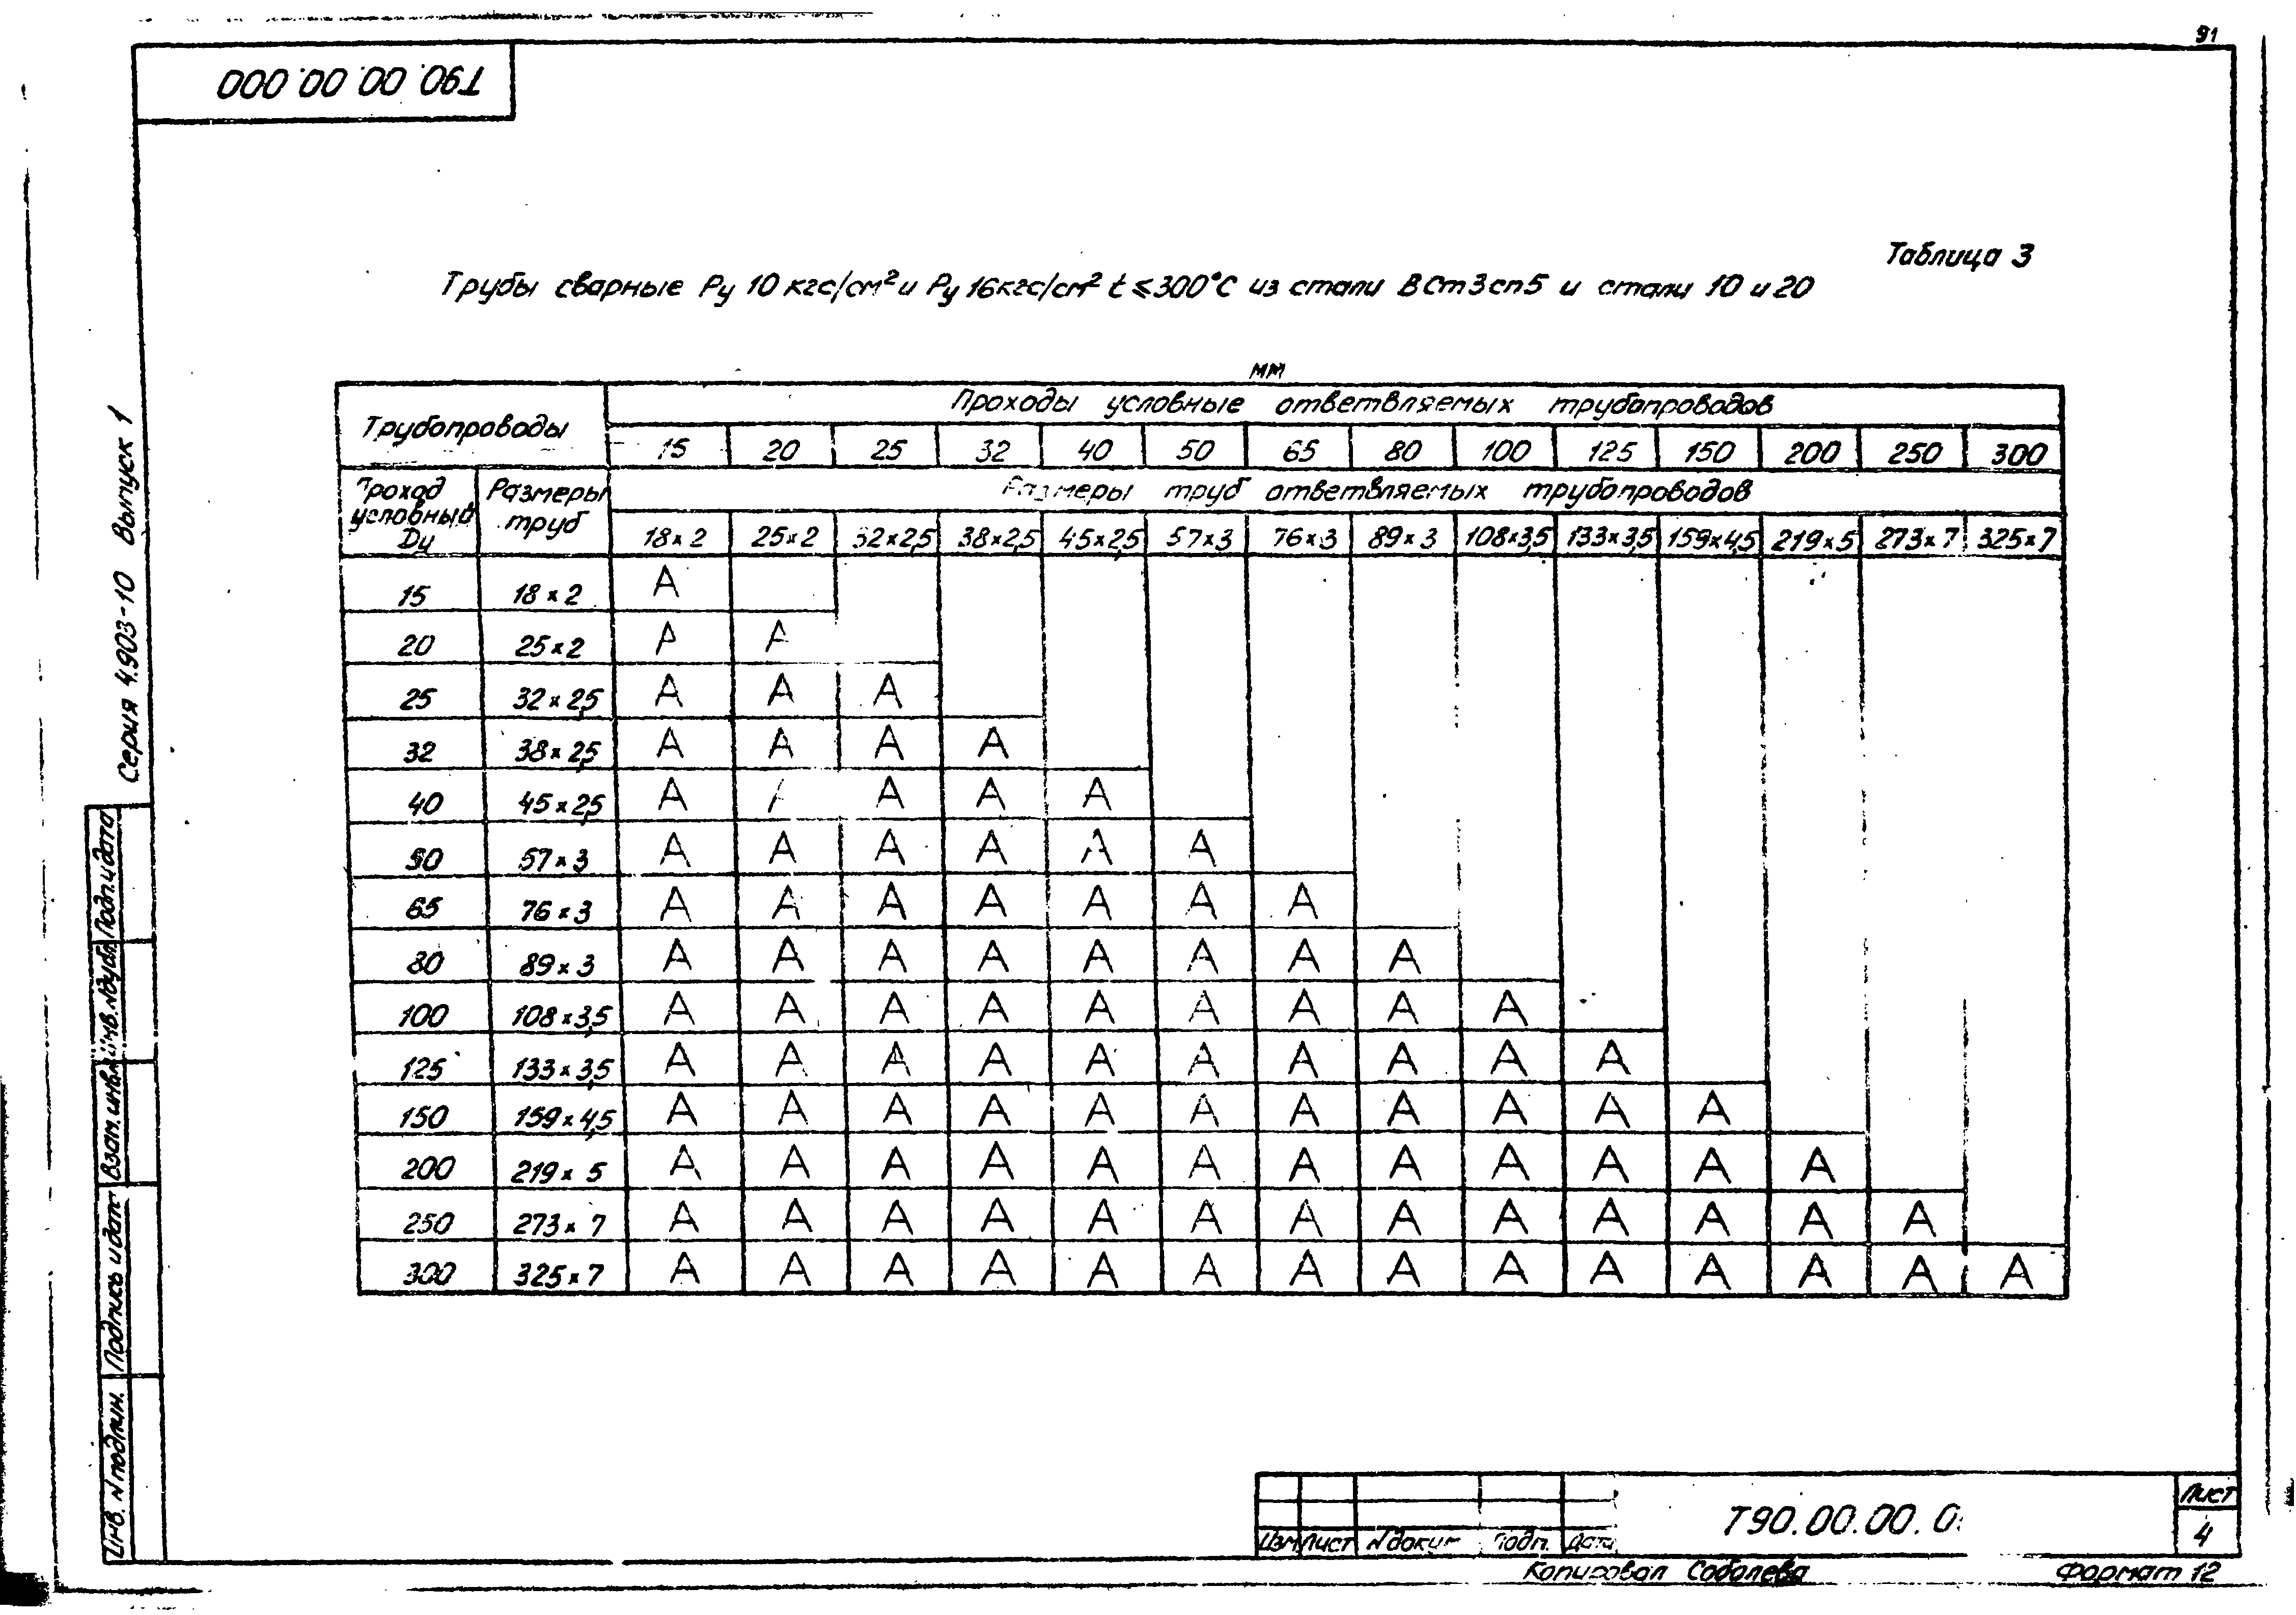 91
Т90. 00. 00. 000
Таблица 3
Трубы сварные Ру 10 кгс/см² и Ру 16кгс/см² t ≤ 300°С из стали ВСт3сп5 и стали 10 и 20
мм
Трубопроводы Проходы условные ответвляемых трубопроводов
15 20 25 32 40 50 65 80 100 125 150 200 250 300
Проход условный Ду Размеры труб Размеры труб ответвляемых трубопроводов
18×2 25×2 32×2,5 38×2,5 45×2,5 57×3 76×3 89×3 108×3,5 133×3,5 159×4,5 219×5 273×7 325×7
15 18×2 А
20 25×2 А А
25 32×2,5 А А А
32 38×2,5 А А А А
40 45×2,5 А А А А А
50 57×3 А А А А А А
65 76×3 А А А А А А А
80 89×3 А А А А А А А А
100 108×3,5 А А А А А А А А А
125 133×3,5 А А А А А А А А А А
150 159×4,5 А А А А А А А А А А А
200 219×5 А А А А А А А А А А А А
250 273×7 А А А А А А А А А А А А А
300 325×7 А А А А А А А А А А А А А А
Серия 4.903-10 Выпуск 1
Подп. и дата
Инв. № дубл.
Взам. инв. №
Подпись и дата
Инв. № подлин.
Изм Лист № докум Подп. Дата
Т90.00.00.0
Лист
4
Копировал Соболева Формат 12